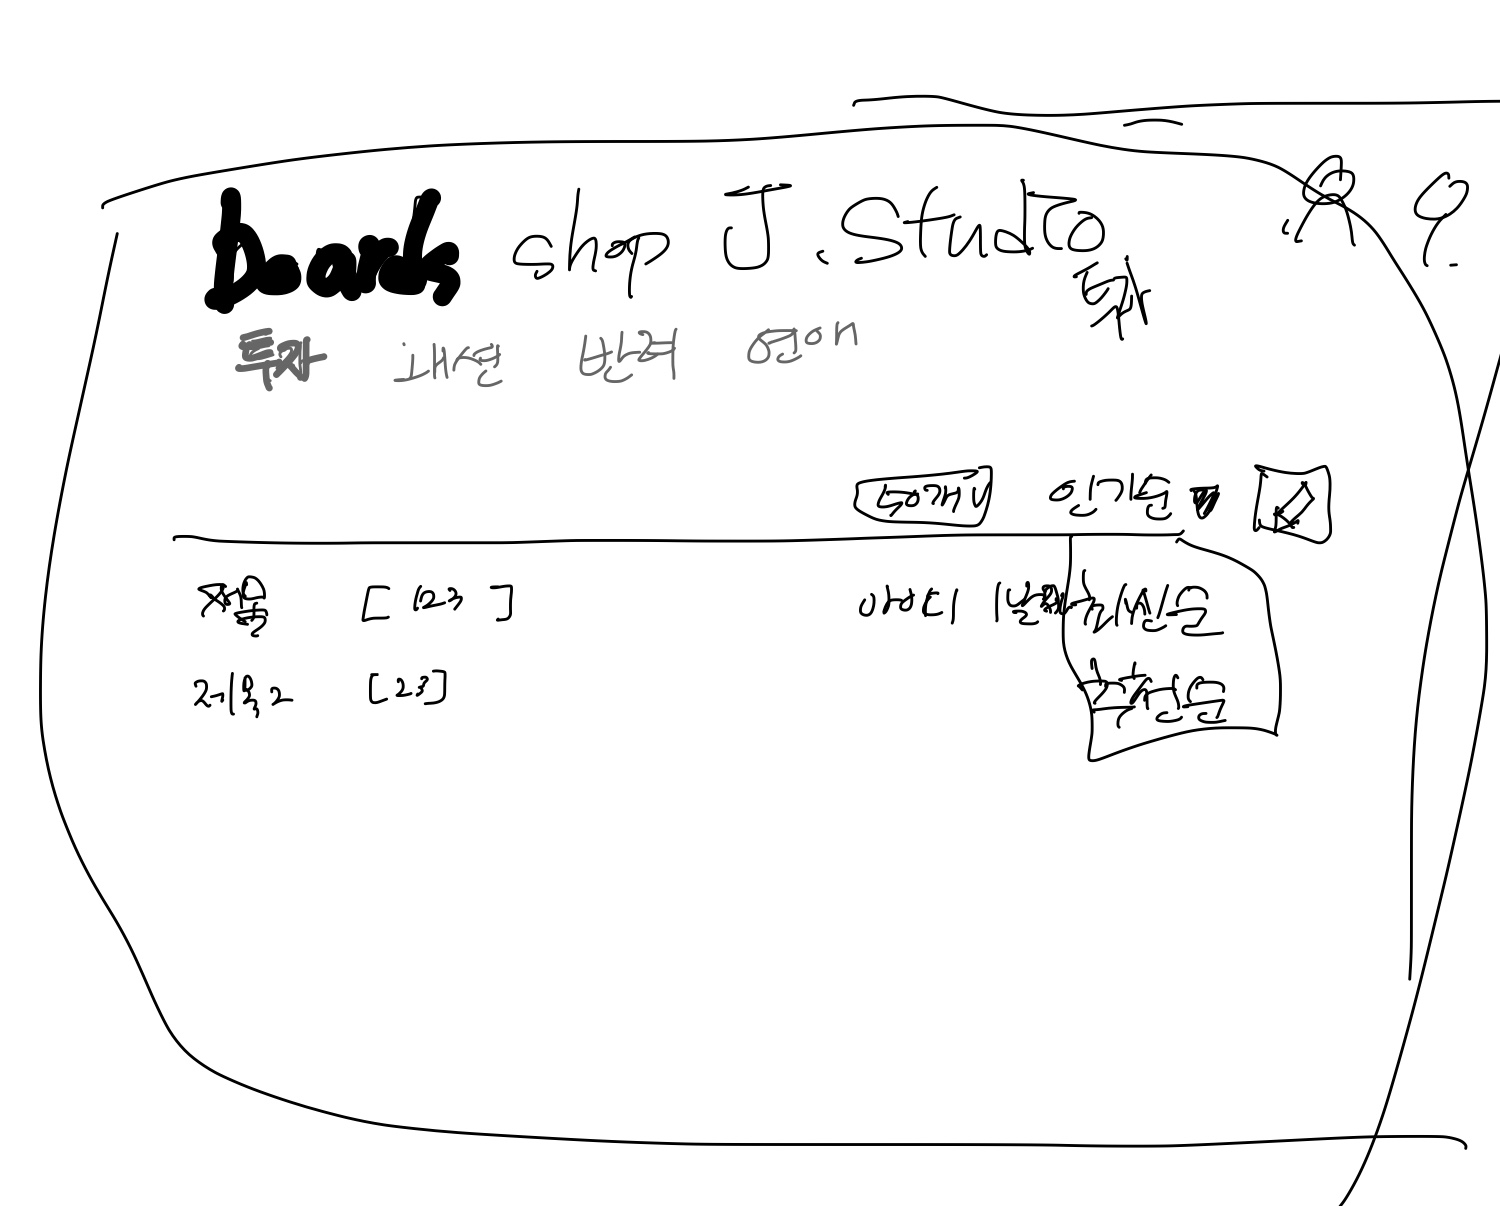 Boards shop J.Studio
투자 패션 반려 연애
50개 인기순
제목 [123] 아이디 날짜 최신순
제목2 [23] 추천순